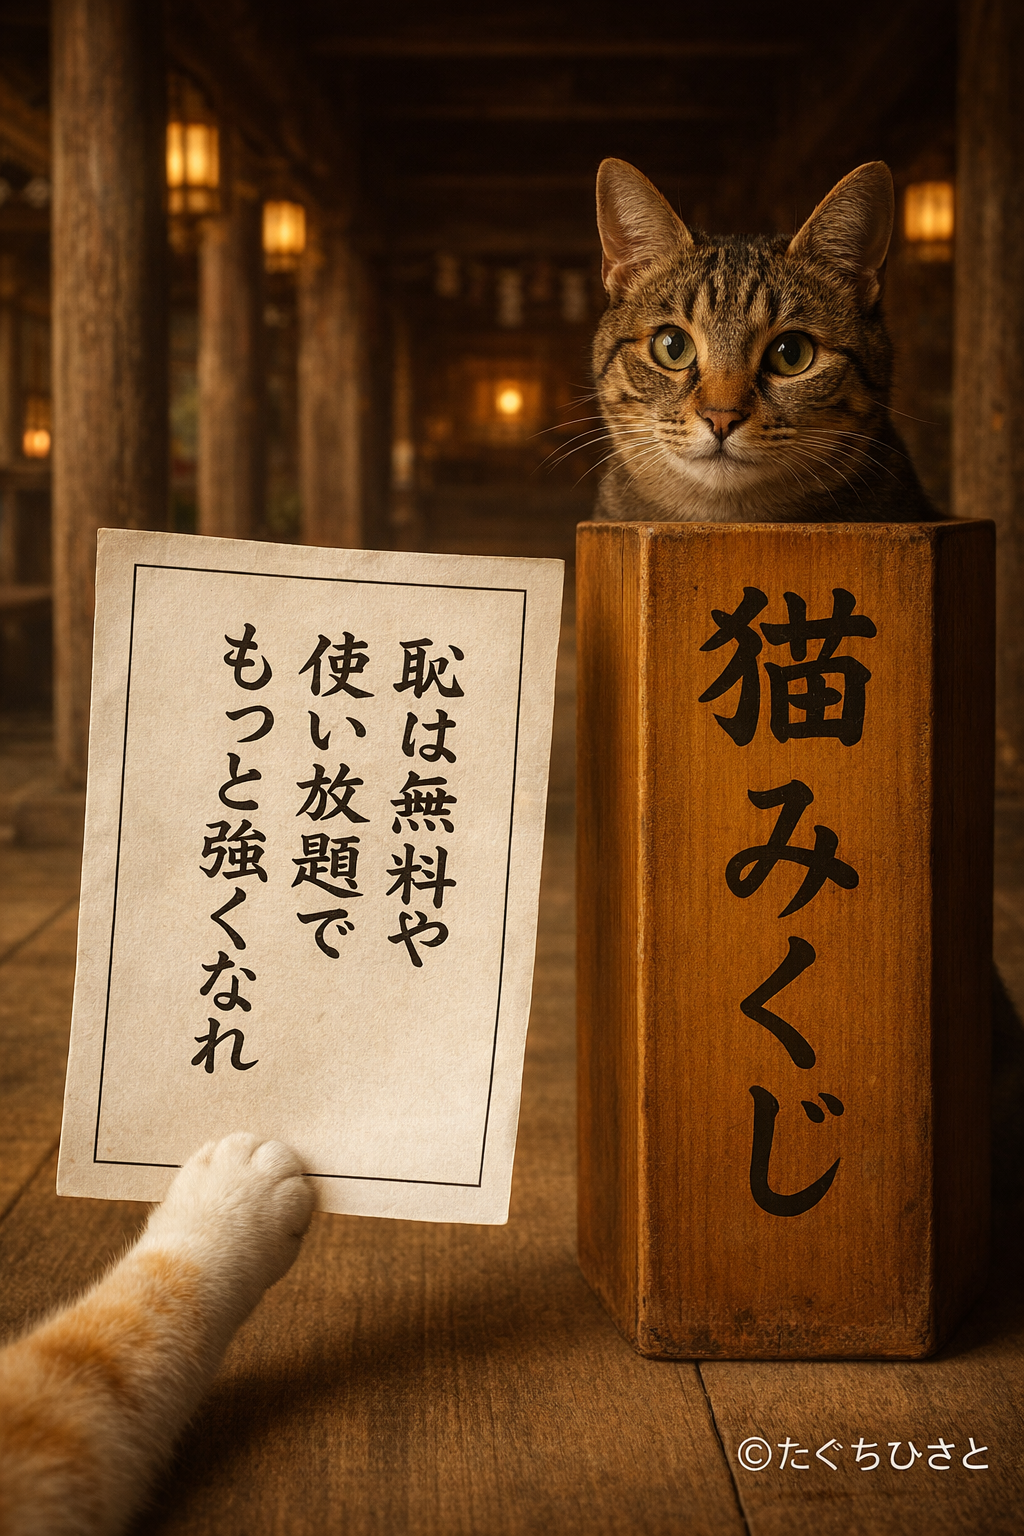 恥は無料や
使い放題で
もっと強くなれ
猫みくじ
©たぐちひさと